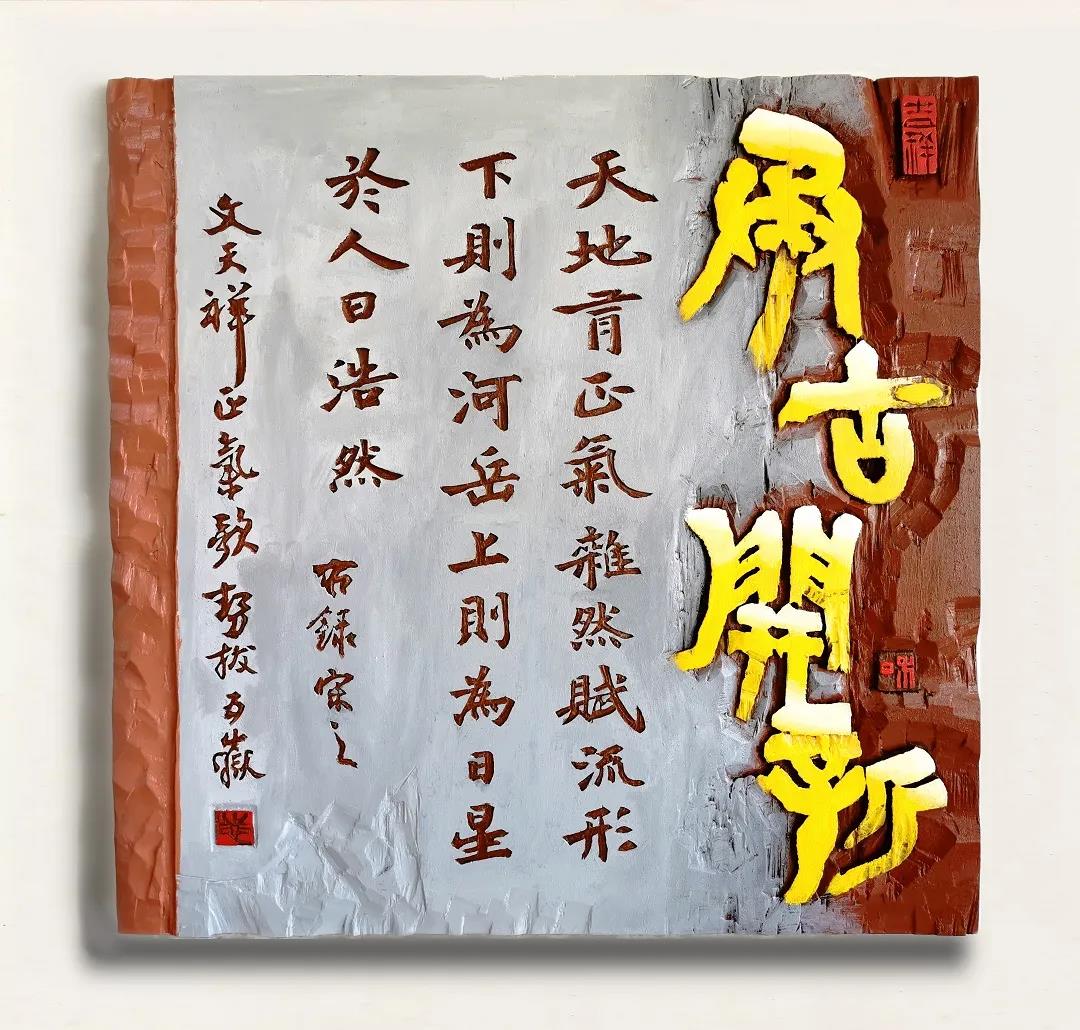 吉祥
古開新
天地有正氣雜然賦流形
下則為河岳上則為日星
於人曰浩然 右録宋之
文天祥正氣歌勢拔五嶽